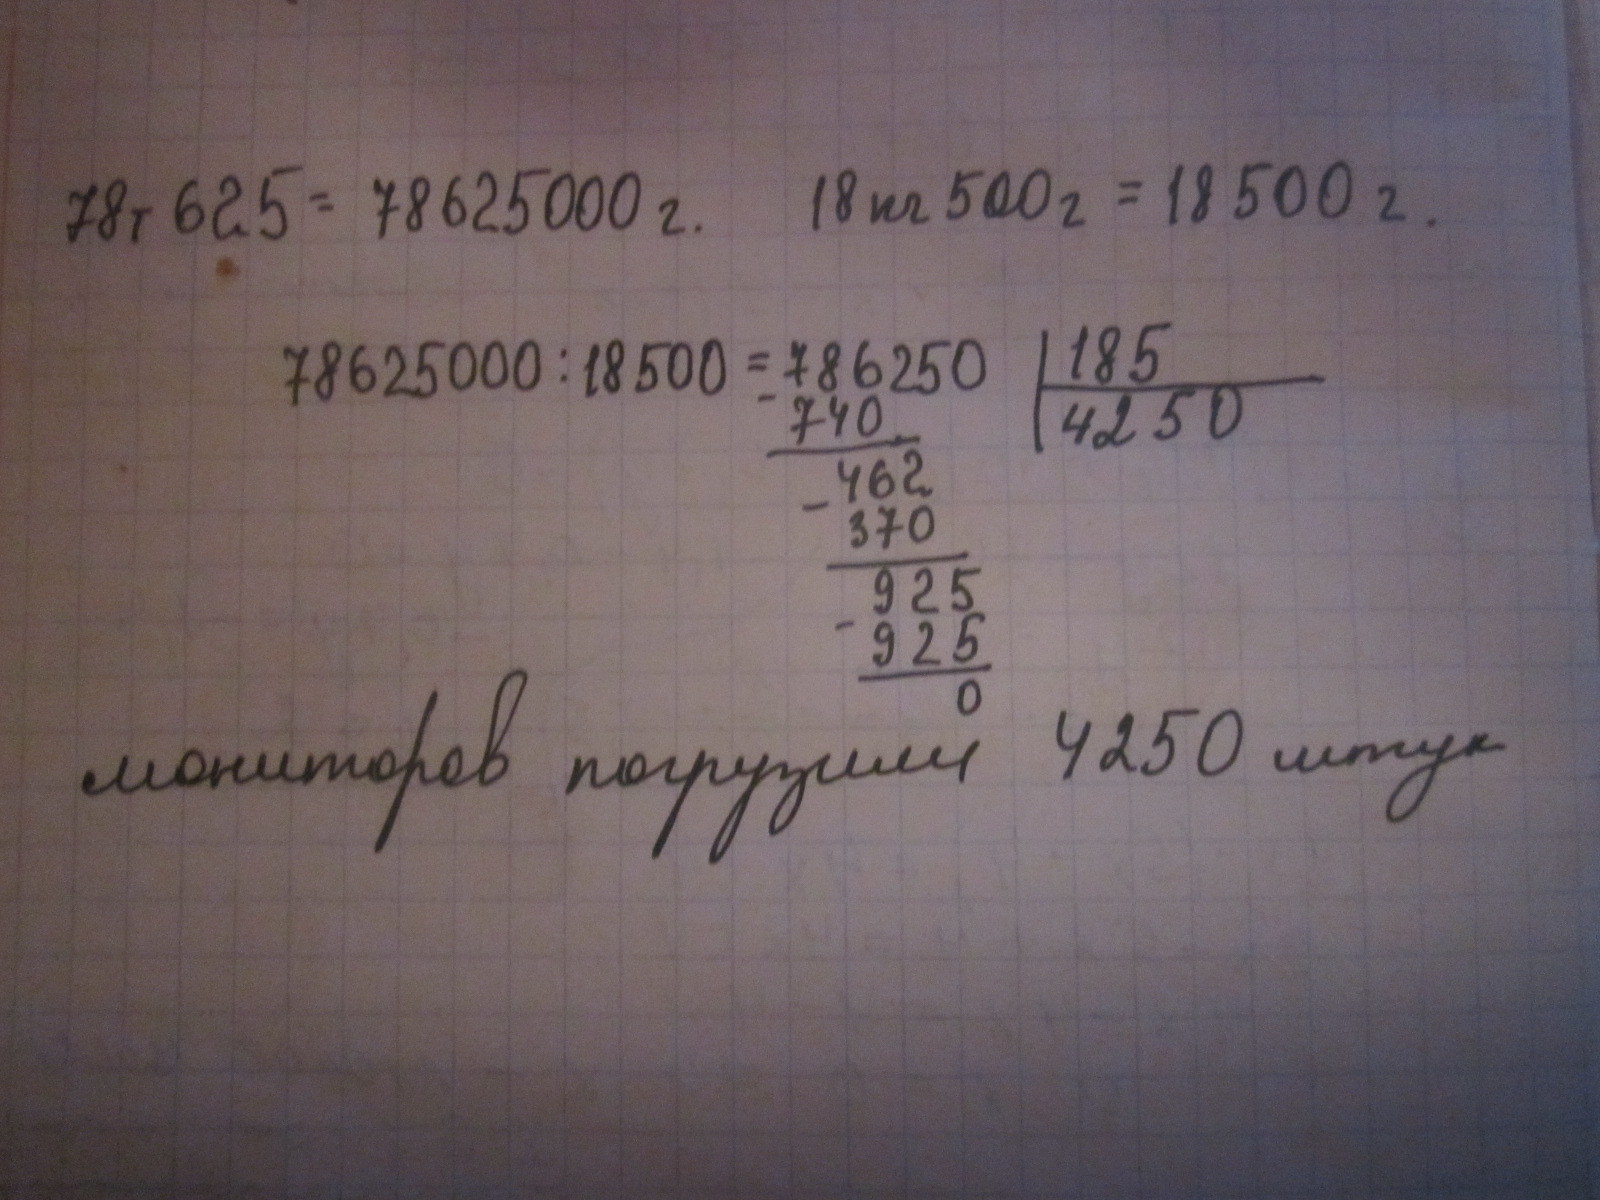 78т 625 = 78625000 г. 18 кг 500 г = 18500 г.
78625000 : 18500 = 786250 185
- 740 4250
462
- 370
925
- 925
0
мониторов погрузили 4250 штук